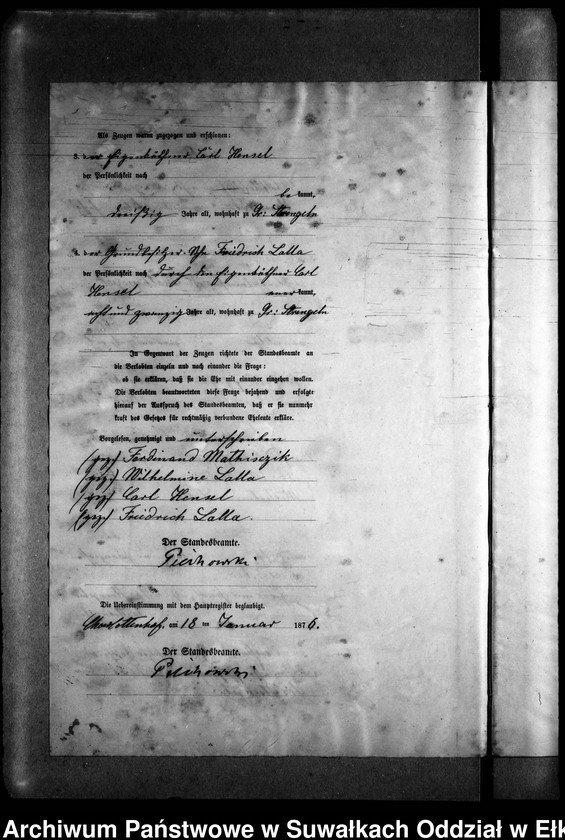 Als Zeugen waren zugezogen und erschienen:
3. der Eigenkäthner Carl Hensel
der Persönlichkeit nach
be kannt,
dreißig Jahre alt, wohnhaft zu Gr: Strengeln
4. der Grundbesitzer Friedrich Lalla
der Persönlichkeit nach durch den Eigenkäthner Carl
Hensel aner kannt,
acht und zwanzig Jahre alt, wohnhaft zu Gr: Strengeln
In Gegenwart der Zeugen richtete der Standesbeamte an
die Verlobten einzeln und nach einander die Frage:
ob sie erklären, daß sie die Ehe mit einander eingehen wollen.
Die Verlobten beantworteten diese Frage bejahend und erfolgte
hierauf der Ausspruch des Standesbeamten, daß er sie nunmehr
kraft des Gesetzes für rechtmäßig verbundene Eheleute erkläre.
Vorgelesen, genehmigt und unterschrieben
(gez) Ferdinand Mathisczik
(gez) Wilhelmine Lalla
(gez) Carl Hensel
(gez) Friedrich Lalla.
Der Standesbeamte.
Die Uebereinstimmung mit dem Hauptregister beglaubigt.
Charlottenhof, am 18 ten Januar 1876.
Der Standesbeamte.
Archiwum Państwowe w Suwałkach Oddział w Ełk